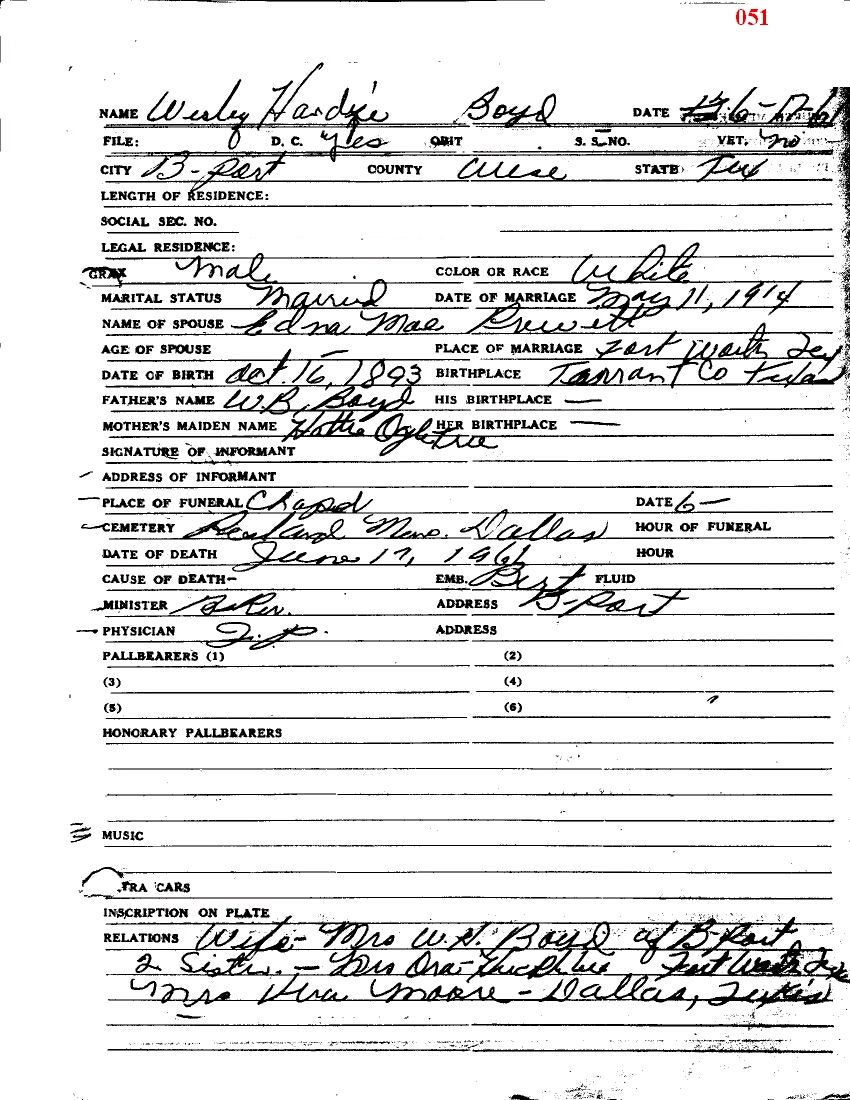 051
NAME Wesley Hardie Boyd DATE 6-17-61
FILE: D. C. Yes OBIT S. S. NO. VET. no
CITY B-port COUNTY Wise STATE Tex
LENGTH OF RESIDENCE:
SOCIAL SEC. NO.
LEGAL RESIDENCE:
Male COLOR OR RACE White
MARITAL STATUS Married DATE OF MARRIAGE May 11, 1914
NAME OF SPOUSE Edna Mae Prewett
AGE OF SPOUSE — PLACE OF MARRIAGE Fort Worth Tex
DATE OF BIRTH Oct. 16, 1893 BIRTHPLACE Tarrant Co Texas
FATHER'S NAME W.B. Boyd HIS BIRTHPLACE —
MOTHER'S MAIDEN NAME Hattie Ogletree HER BIRTHPLACE —
SIGNATURE OF INFORMANT
ADDRESS OF INFORMANT
PLACE OF FUNERAL Chapel DATE 6—
CEMETERY Mem. Dallas HOUR OF FUNERAL
DATE OF DEATH June 17, 1961 HOUR
CAUSE OF DEATH— EMB. Bert FLUID
MINISTER Baker. ADDRESS B-Port
PHYSICIAN J.P. ADDRESS
PALLBEARERS (1) (2)
(3) (4)
(5) (6)
HONORARY PALLBEARERS
MUSIC
TRA CARS
INSCRIPTION ON PLATE
RELATIONS Wife- Mrs W.H. Boyd of B-Port
2 Sister. — Mrs Ora Fort Worth Tex
Mrs Vera Moore - Dallas, Texas